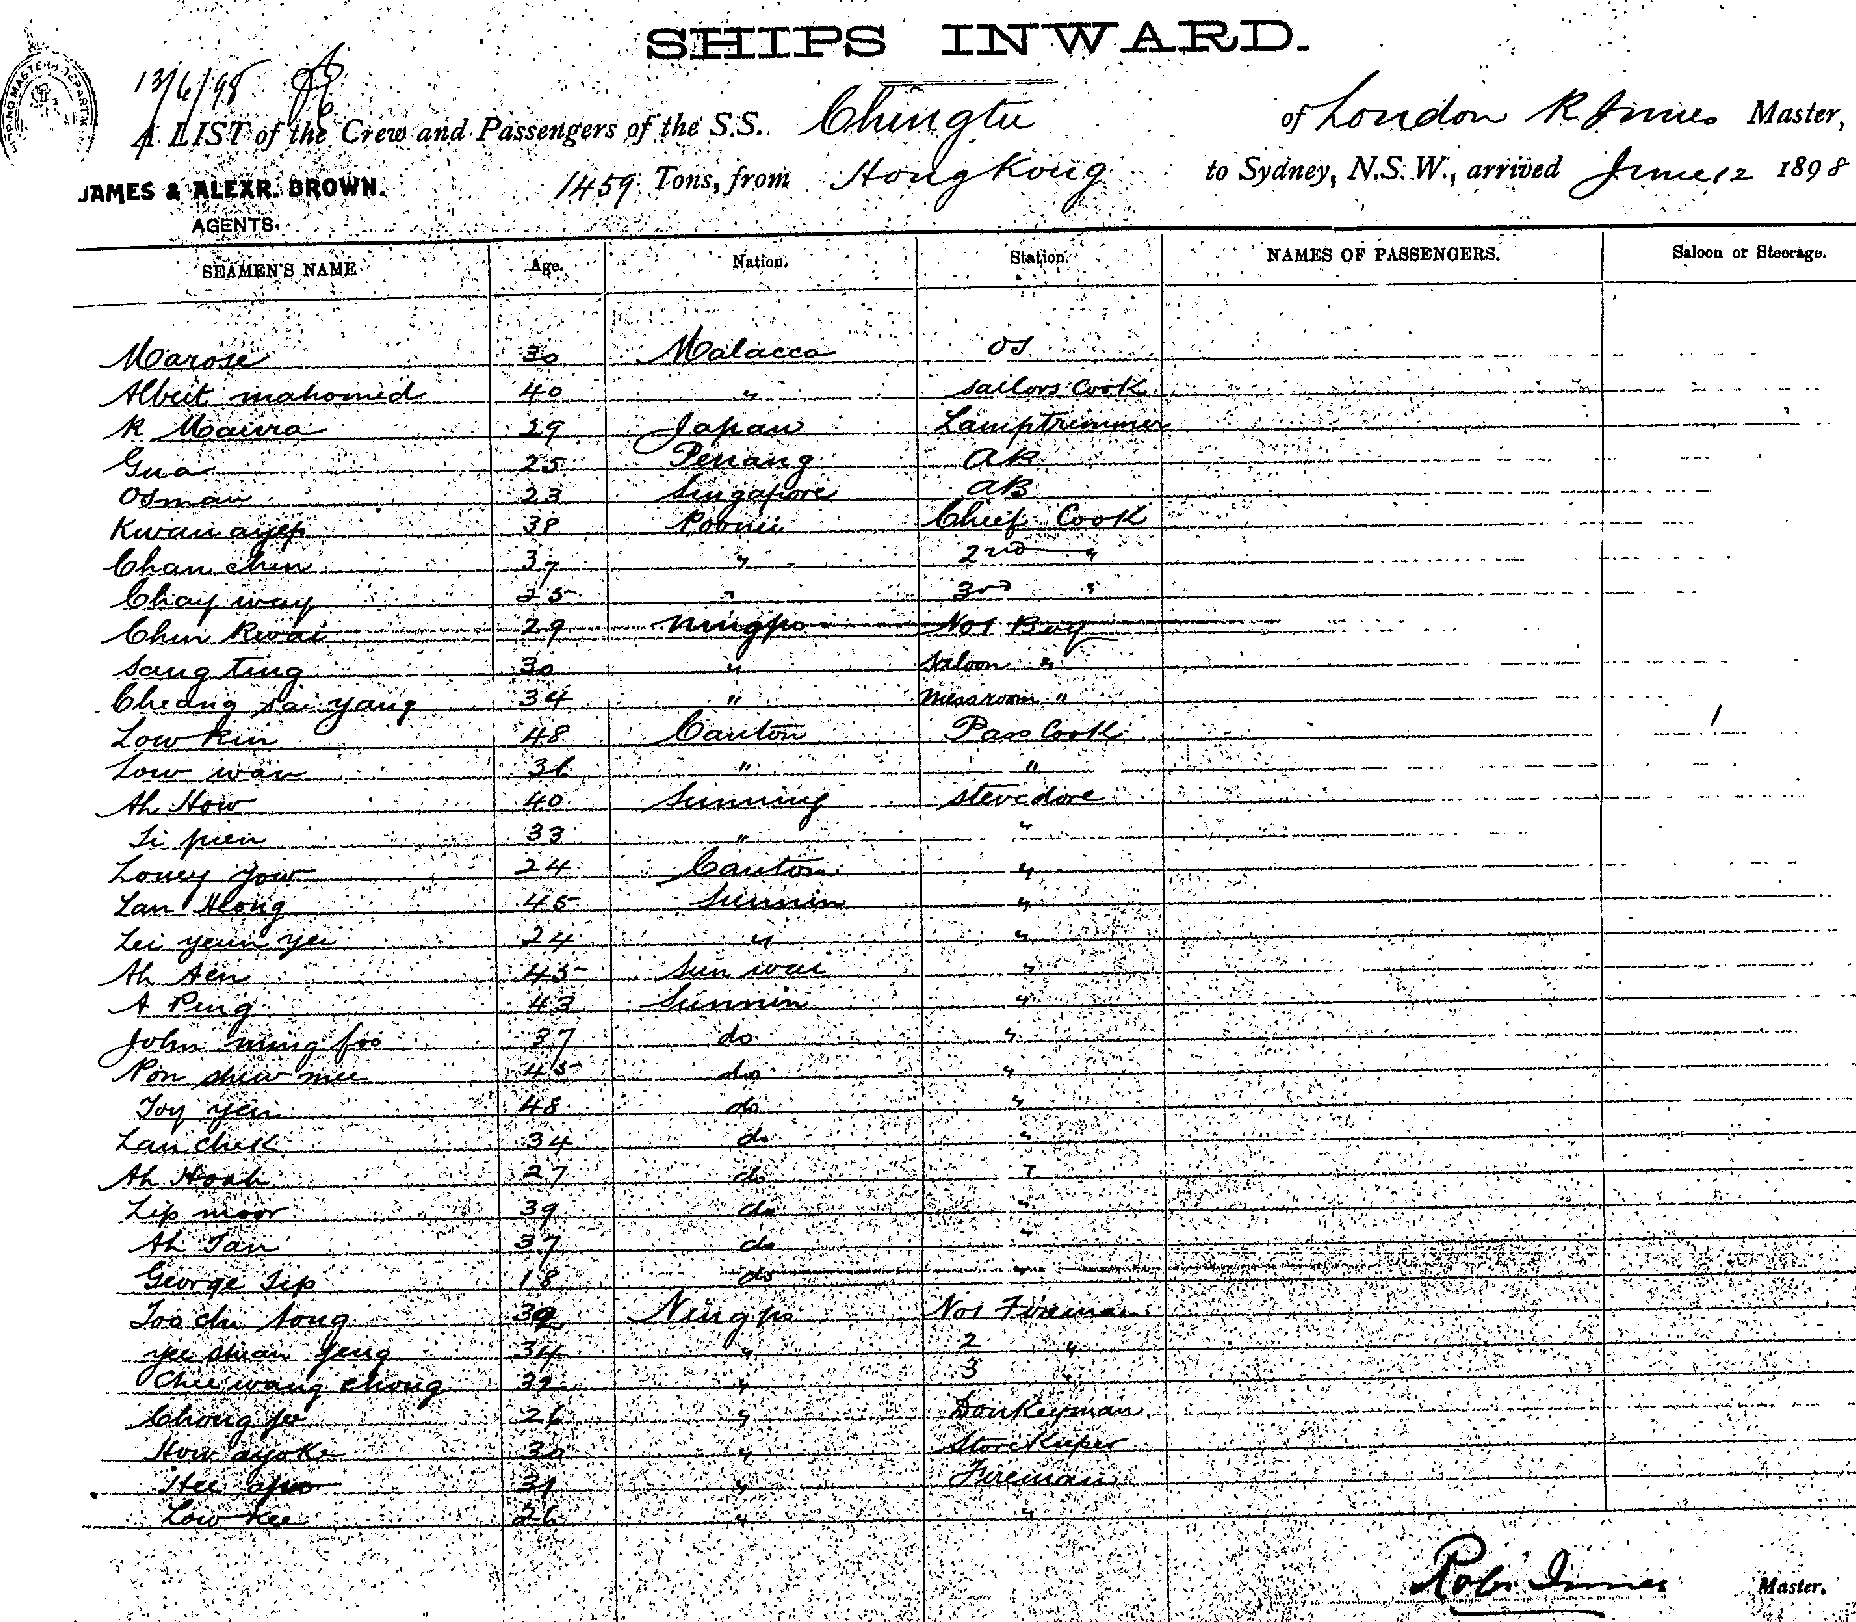 SHIPS INWARD.
13/6/98
A LIST of the Crew and Passengers of the S.S. Chingtu of London R Innes Master,
JAMES & ALEXR. BROWN. AGENTS.
1459 Tons, from Hong Kong to Sydney, N.S.W., arrived June 12 1898
SEAMEN'S NAME Age. Nation. Station. NAMES OF PASSENGERS. Saloon or Steerage.
Marose 30 Malacca OS
Albeit mahomed 40 " sailors Cook
R Maura 29 Japan Lamptrimmer
Gua 25 Penang AB
Osman 23 Singapore AB
Kwan ayep 38 Chief Cook
Chan chun 37 " 2nd "
Chay way 25 " 3rd "
Chun Kwai 29 Ningpo No 1 Boy
Sang ting 30 " Saloon "
Cheang sai yang 34 " Messroom "
Low Kin 48 Canton Pass Cook
Low wan 36 " "
Ah How 40 Sunning stevedore
Li pien 33 " "
Louey Jow 24 Canton "
Lan Hong 45 Sunnin "
Lei yein yei 24 " "
Ah Hen 45 Sun wai "
A Ping 43 Sunnin "
John ming foo 37 do "
Pon shew mee 45 do "
Toy yein 48 do "
Lau chek 34 do "
Ah Hoah 27 do "
Lip moor 39 do "
Ah Tan 37 do "
George Sip 18 do "
Too chu song Ningpo No 1 Fireman
yee shian yeng 34 " 2 "
Chee wang chong 32 " 3 "
Chong fee 26 " Donkeyman
How ayoke 30 " Storekeeper
Hee apoo 31 " Fireman
Low Kee 26 " "
Robt Innes Master.